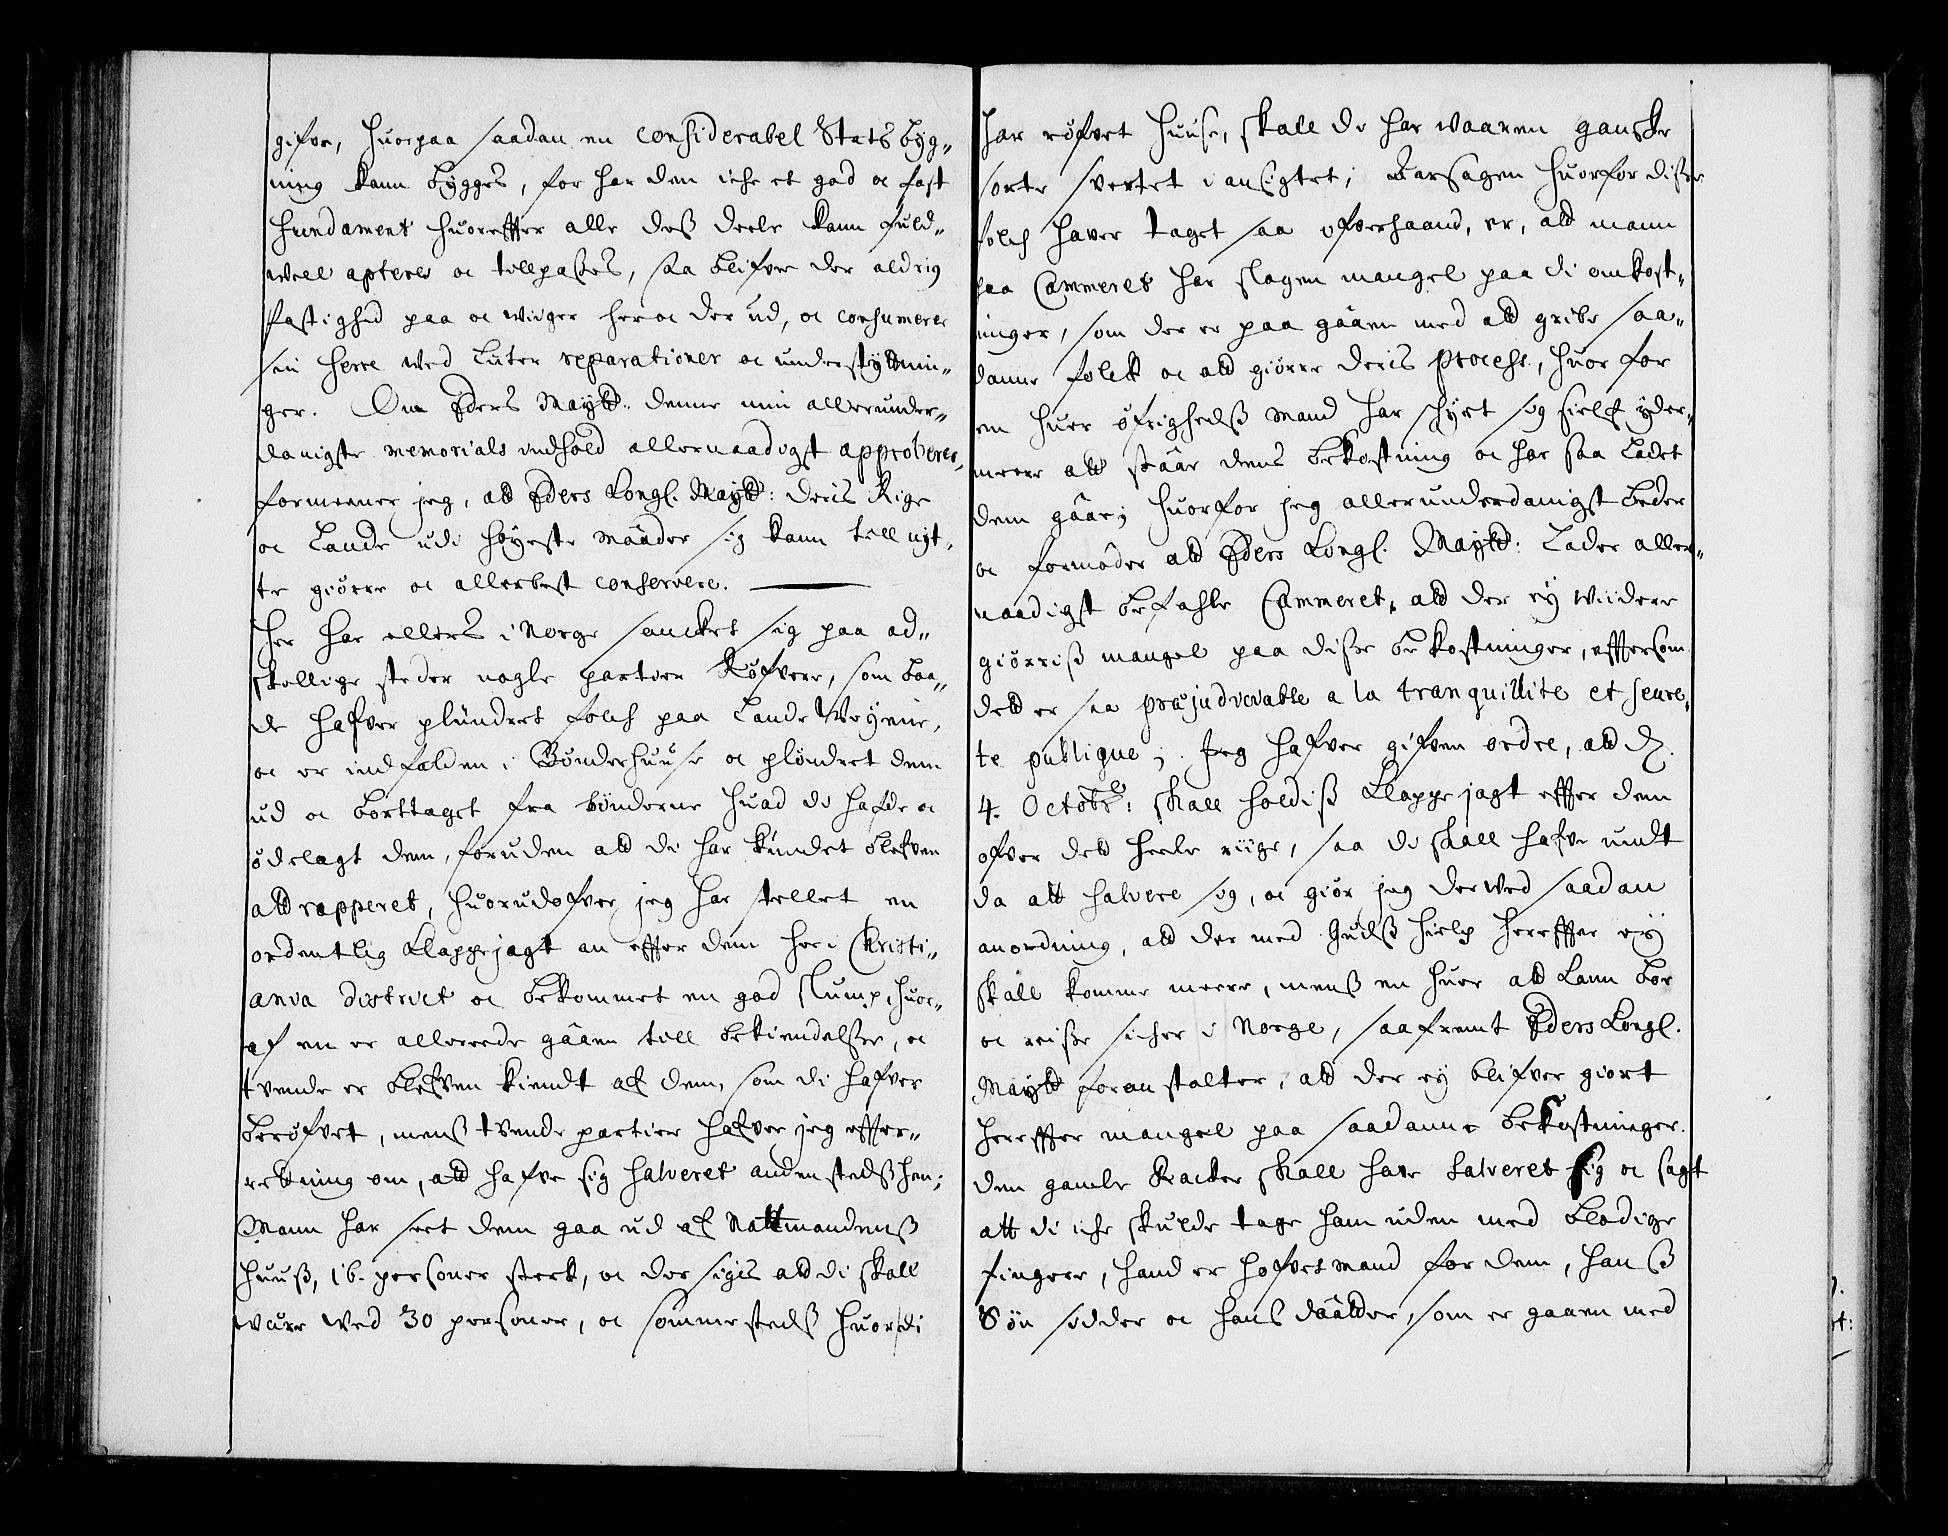 gifve, huorpaa saadan en considerabel Stats byg-
ning kann bygges, for har den iche et god oc fast
fundament huoreffter alle dess deele kann fuld-
well apteres oc tillpasses, saa blifver der aldrig
fastighed paa oc wiiger her oc der ud, oc consumerer
sin herre wed luter reparationer oc understytnin-
ger. Om Eders Maytt: denne min allerunder-
danigste memorials indhold allernaadigst approberer,
formeener jeg, att Eders Kongl. Maytt: deris Rige
oc Lande udi høyeste maader sig kann till nyt-
te giørre oc allerbest conservere.
Her har ellers i Norge sancket sig paa ad-
skellige steder nogle partier Røfvere, som baa-
de hafver plündert folch paa Lande Weyene,
oc er indfalden i Bønderhuuse oc plöndret dem
ud oc borttaget fra bönderne huad de hafde oc
ødelagt dem, foruden att di har kundet blefven
attrapperet, huorudofver jeg har stellet en
ordentlig Klappejagt an effter dem her i Christi-
ania District oc bekommet en god slump, huor-
af en er allerede gaaen till bekiendelse, oc
tvende er blefven kiendt af dem, som di hafver
berøfvet, mens tvende partier hafver jeg effter-
retning om, att hafve sig salveret anden steds hen;
Mann har seet dem gaa ud af Nattmandens
huus, 16. personer sterk, oc der sigis att di skall
være wed 30 personer, oc sommesteds huor di
har røfvet huuse, skall de har vaaren ganske
sorte svertet i ansigtet; Aarsagen huorfor disse
folch haver taget saa ofverhaand, er, att mann
paa Cammeret har slagen mangel paa di omkost-
ninger, som der er paa gaaen med att gribe saa-
danne folck oc att giørre deris Process, huor for
en huer øfrigheds mand har schyet sig sielf yder-
meere att staae dens bekostning oc har saa ladet
dem gaae; huorfor jeg allerunderdanigst beder
oc formoder att Eders Kongl. Maytt: lader aller-
naadigst befahle Cammeret, att der ey wiidere
giørris mangel paa disse bekostninger, effter som
dett er saa præjudicable a la tranquillite et seure-
te publique; Jeg hafver gifven ordre, att d.
4. Octobr: skall holdis Klappejagt effter dem
ofver dett heele riige, saa di skall hafve undt
da att salvere sig, oc giør jeg derved saadan
anordning, att der med Guds hielp hereffter ey
skall komme meere, mens en huer att kann boe
oc reise sicher i Norge, saafremt Eders Kongl.
Maytt foranstalter, att der ey blifver giort
hereffter mangel paa saadanne bekostninger.
den gamle Racker skall have salveret sig oc sagt
att di iche skulde tage ham uden med blodige
fingere, hand er høfvetsmand for dem, hans
Søn sidder oc hans daatter, som er gaaen med